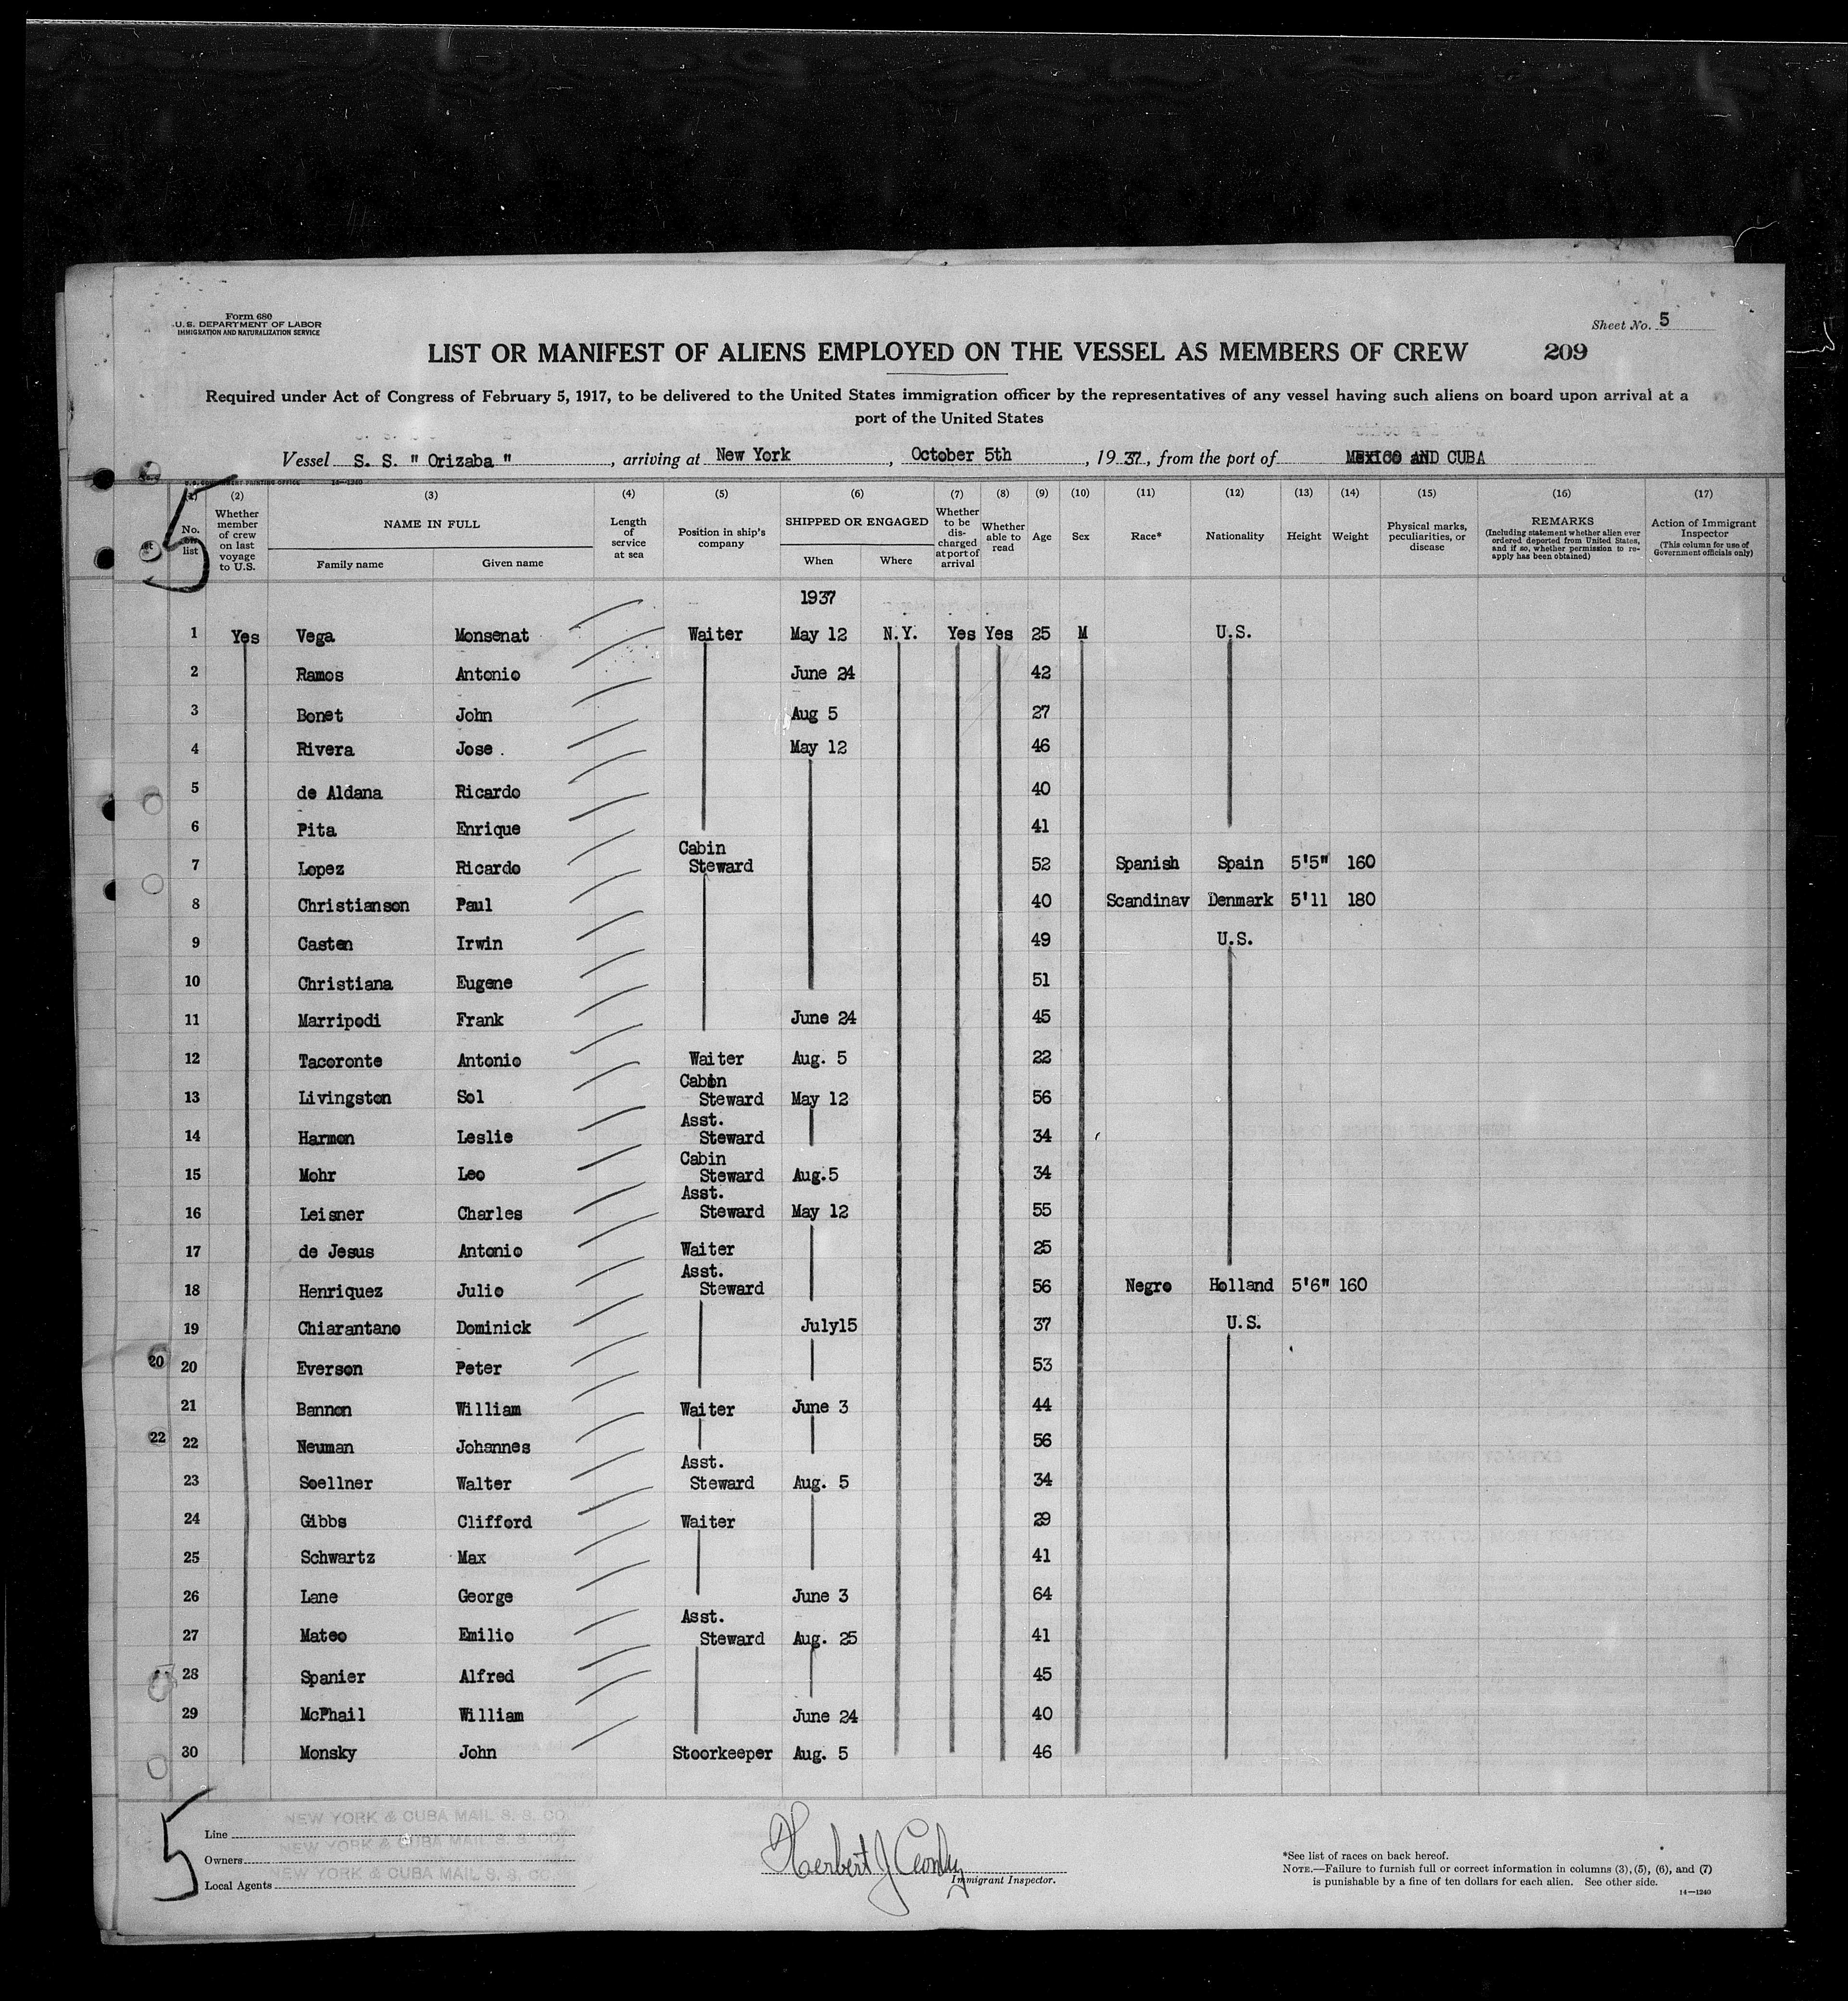 Form 680
U. S. DEPARTMENT OF LABOR
IMMIGRATION AND NATURALIZATION SERVICE
Sheet No. 5
LIST OR MANIFEST OF ALIENS EMPLOYED ON THE VESSEL AS MEMBERS OF CREW 209
Required under Act of Congress of February 5, 1917, to be delivered to the United States immigration officer by the representatives of any vessel having such aliens on board upon arrival at a
port of the United States
Vessel S. S. " Orizaba ", arriving at New York, October 5th, 1937, from the port of MEXICO AND CUBA
U.S. GOVERNMENT PRINTING OFFICE 14—1240
5
(1) (2) (3) (4) (5) (6) (7) (8) (9) (10) (11) (12) (13) (14) (15) (16) (17)
No. on list
Whether member of crew on last voyage to U.S.
NAME IN FULL
Family name Given name
Length of service at sea
Position in ship's company
SHIPPED OR ENGAGED
When Where
Whether to be discharged at port of arrival
Whether able to read
Age Sex Race* Nationality Height Weight
Physical marks, peculiarities, or disease
REMARKS
(Including statement whether alien ever ordered deported from United States, and if so, whether permission to reapply has been obtained)
Action of Immigrant Inspector
(This column for use of Government officials only)
1937
1 Yes Vega Monsenat Waiter May 12 N.Y. Yes Yes 25 M U.S.
2 Ramos Antonio June 24 42
3 Bonet John Aug 5 27
4 Rivera Jose . May 12 46
5 de Aldana Ricardo 40
6 Pita Enrique 41
7 Lopez Ricardo Cabin Steward 52 Spanish Spain 5'5" 160
8 Christianson Paul 40 Scandinav Denmark 5'11 180
9 Casten Irwin 49 U.S.
10 Christiana Eugene 51
11 Marripodi Frank June 24 45
12 Tacoronte Antonio Waiter Aug. 5 22
13 Livingston Sol Cabin Steward May 12 56
14 Harmon Leslie Asst. Steward 34
15 Mohr Leo Cabin Steward Aug.5 34
16 Leisner Charles Asst. Steward May 12 55
17 de Jesus Antonio Waiter 25
18 Henriquez Julio Asst. Steward 56 Negro Holland 5'6" 160
19 Chiarantano Dominick July15 37 U.S.
20 20 Everson Peter 53
21 Bannon William Waiter June 3 44
22 22 Neuman Johannes 56
23 Soellner Walter Asst. Steward Aug. 5 34
24 Gibbs Clifford Waiter 29
25 Schwartz Max 41
26 Lane George June 3 64
27 Mateo Emilio Asst. Steward Aug. 25 41
28 Spanier Alfred 45
29 McPhail William June 24 40
30 Monsky John Stoorkeeper Aug. 5 46
5
Line NEW YORK & CUBA MAIL S. S. CO.
Owners NEW YORK & CUBA MAIL S. S. CO.
Local Agents NEW YORK & CUBA MAIL S. S. CO.
Herbert J
Immigrant Inspector.
*See list of races on back hereof.
NOTE.—Failure to furnish full or correct information in columns (3), (5), (6), and (7)
is punishable by a fine of ten dollars for each alien. See other side.
14—1240